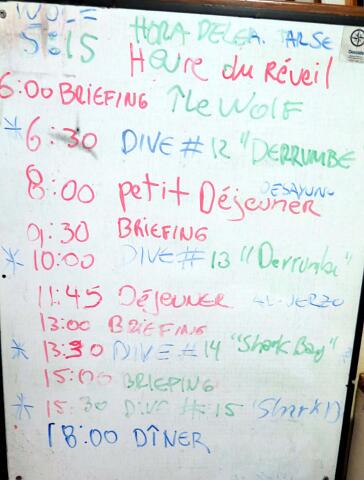 WOLF
5:15 HORA DE LEVANTARSE
Heure du Réveil
6:00 BRIEFING Île WOLF
* 6:30 DIVE # 12 "DERRUMBE
8:00 petit Déjeuner DESAYUNO
9:30 BRIEFING
* 10:00 DIVE # 13 "Derrumbe"
11:45 Déjeuner
13:00 BRIEFING
* 13:30 DIVE # 14 "Shark Bay"
15:00 BRIEFING
* 15:30 DIVE # 15 "Shark B
18:00 DÎNER